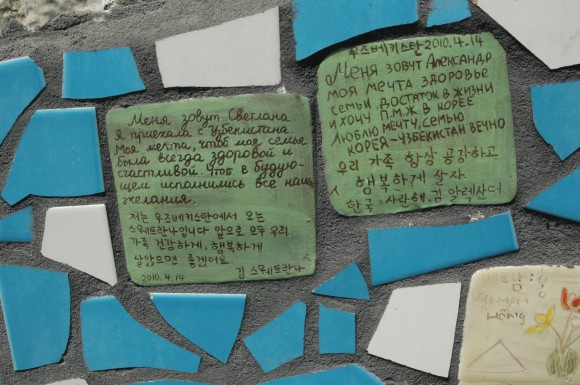 Меня зовут Светлана.
я приехала с Узбекистана.
Моя мечта, чтоб моя семья
была всегда здоровой и
счастливой. чтоб в будую-
щем исполнились все наши
желания.
저는 우즈베키스탄에서 오는
스웨트란나입니다 앞으로 모두 우리
가족 건강하게, 행복하게
살았으면 좋겠어요
2010.4.14 김 스웨트란나
우즈베키스탄 2010.4.14
Меня зовут Александр
моя мечта здоровье
семьи достаток в жизни
и хочу П.М.Ж в Корее
Люблю мечту, семью
Корея-Узбекистан вечно
우리 가족 항상 공강하고
행복하게 살자
한국 사랑해. 김 알렉산더
HồNG